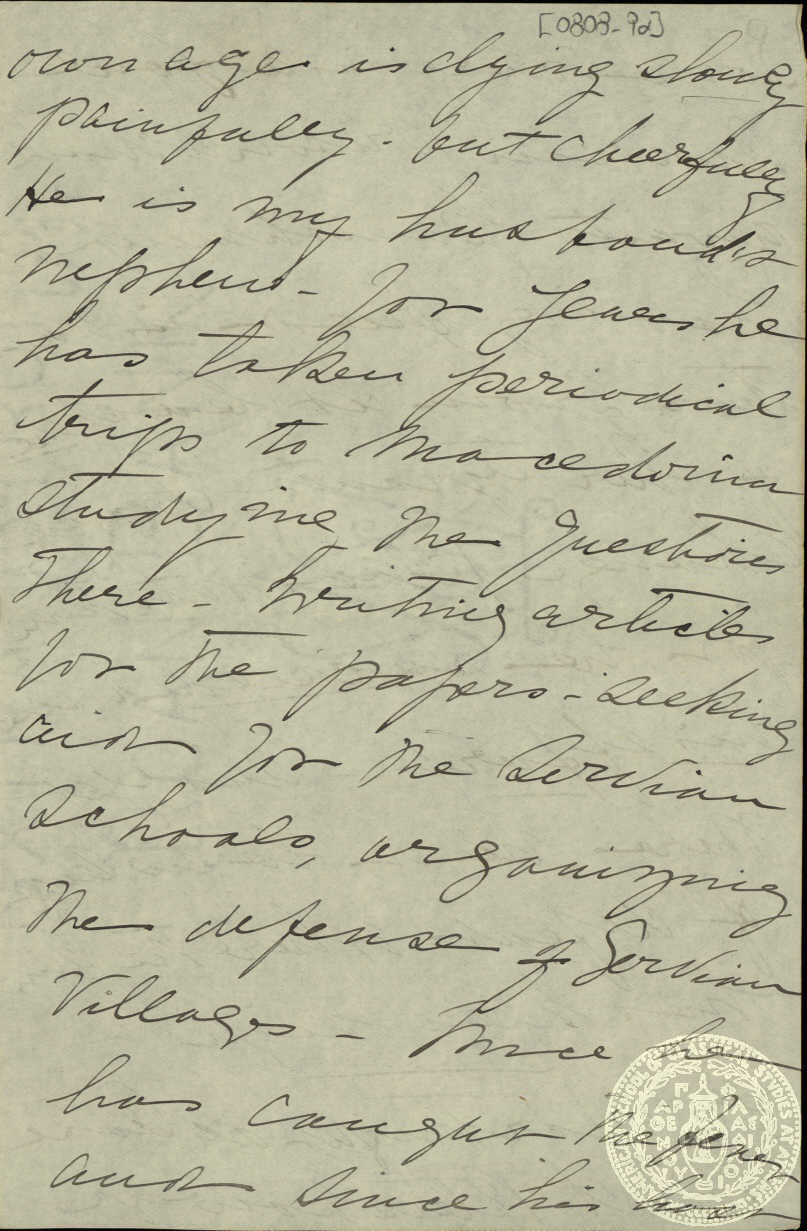 [0808-92]
own age is dying slowly
painfully. but cheerfully
He is my husband's
nephew - for years he
has taken periodical
trips to Macedonia
studying the questions
there - writing articles
for the papers - seeking
aid for the Servian
schools, organizing
the defense of Servian
Villages - Twice he
has caught the fever
and since his last